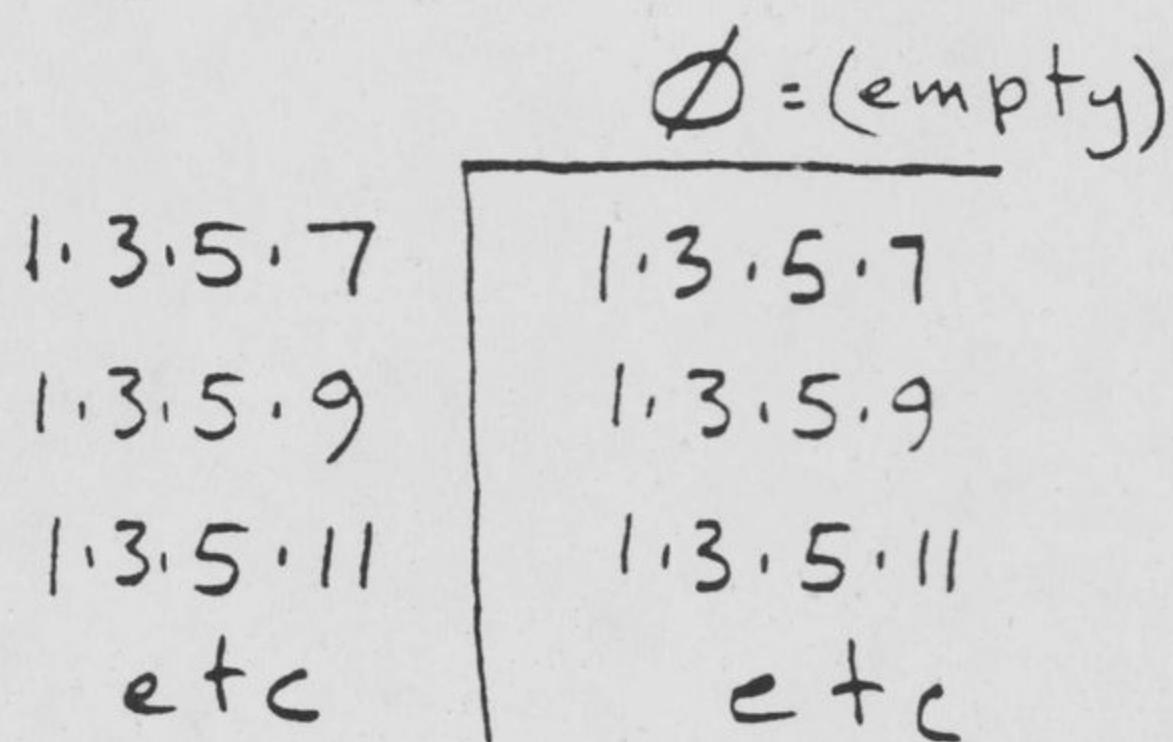 Ø = (empty)
1·3·5·7 1·3·5·7
1·3·5·9 1·3·5·9
1·3·5·11 1·3·5·11
etc etc